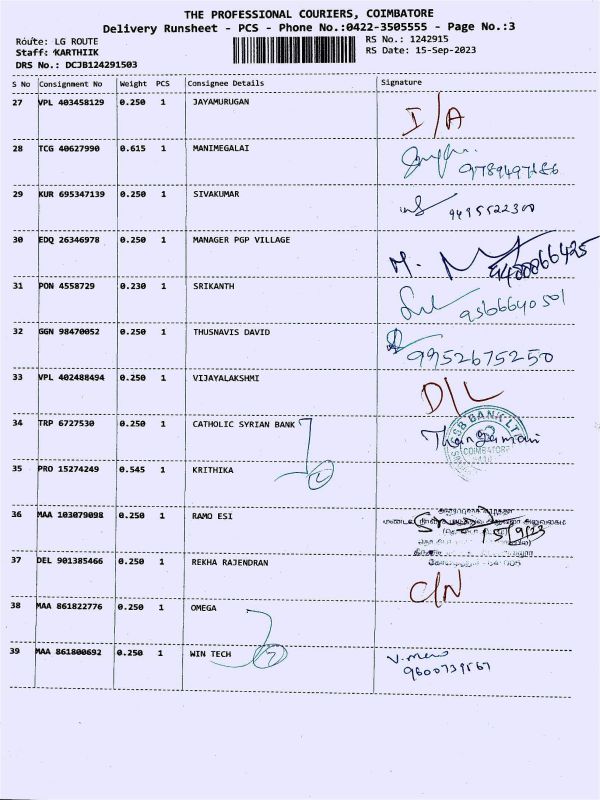 THE PROFESSIONAL COURIERS, COIMBATORE
Delivery Runsheet - PCS - Phone No.:0422-3505555 - Page No.:3
Route: LG ROUTE
RS No.: 1242915
Staff: KARTHIIK
RS Date: 15-Sep-2023
DRS No.: DCJB124291503
S No Consignment No Weight PCS Consignee Details Signature
27 VPL 403458129 0.250 1 JAYAMURUGAN I/A
28 TCG 40627990 0.615 1 MANIMEGALAI
29 KUR 695347139 0.250 1 SIVAKUMAR
30 EDQ 26346978 0.250 1 MANAGER PGP VILLAGE
31 PON 4558729 0.230 1 SRIKANTH
32 GGN 98470052 0.250 1 THUSNAVIS DAVID 9952675250
33 VPL 402488494 0.250 1 VIJAYALAKSHMI D/L
34 TRP 6727530 0.250 1 CATHOLIC SYRIAN BANK Thangamani
35 PRO 15274249 0.545 1 KRITHIKA
36 MAA 103079098 0.250 1 RAMO ESI 15/9/23
37 DEL 901385466 0.250 1 REKHA RAJENDRAN C/N
38 MAA 861822776 0.250 1 OMEGA
39 MAA 861800692 0.250 1 WIN TECH